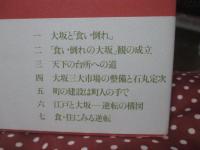 一　大坂と「食い倒れ」
二　「食い倒れの大坂」観の成立
三　天下の台所への道
四　大坂三大市場の整備と石丸定次
五　町の建設は町人の手で
六　江戸と大坂―逆転の構図
七　食・住にみる逆転